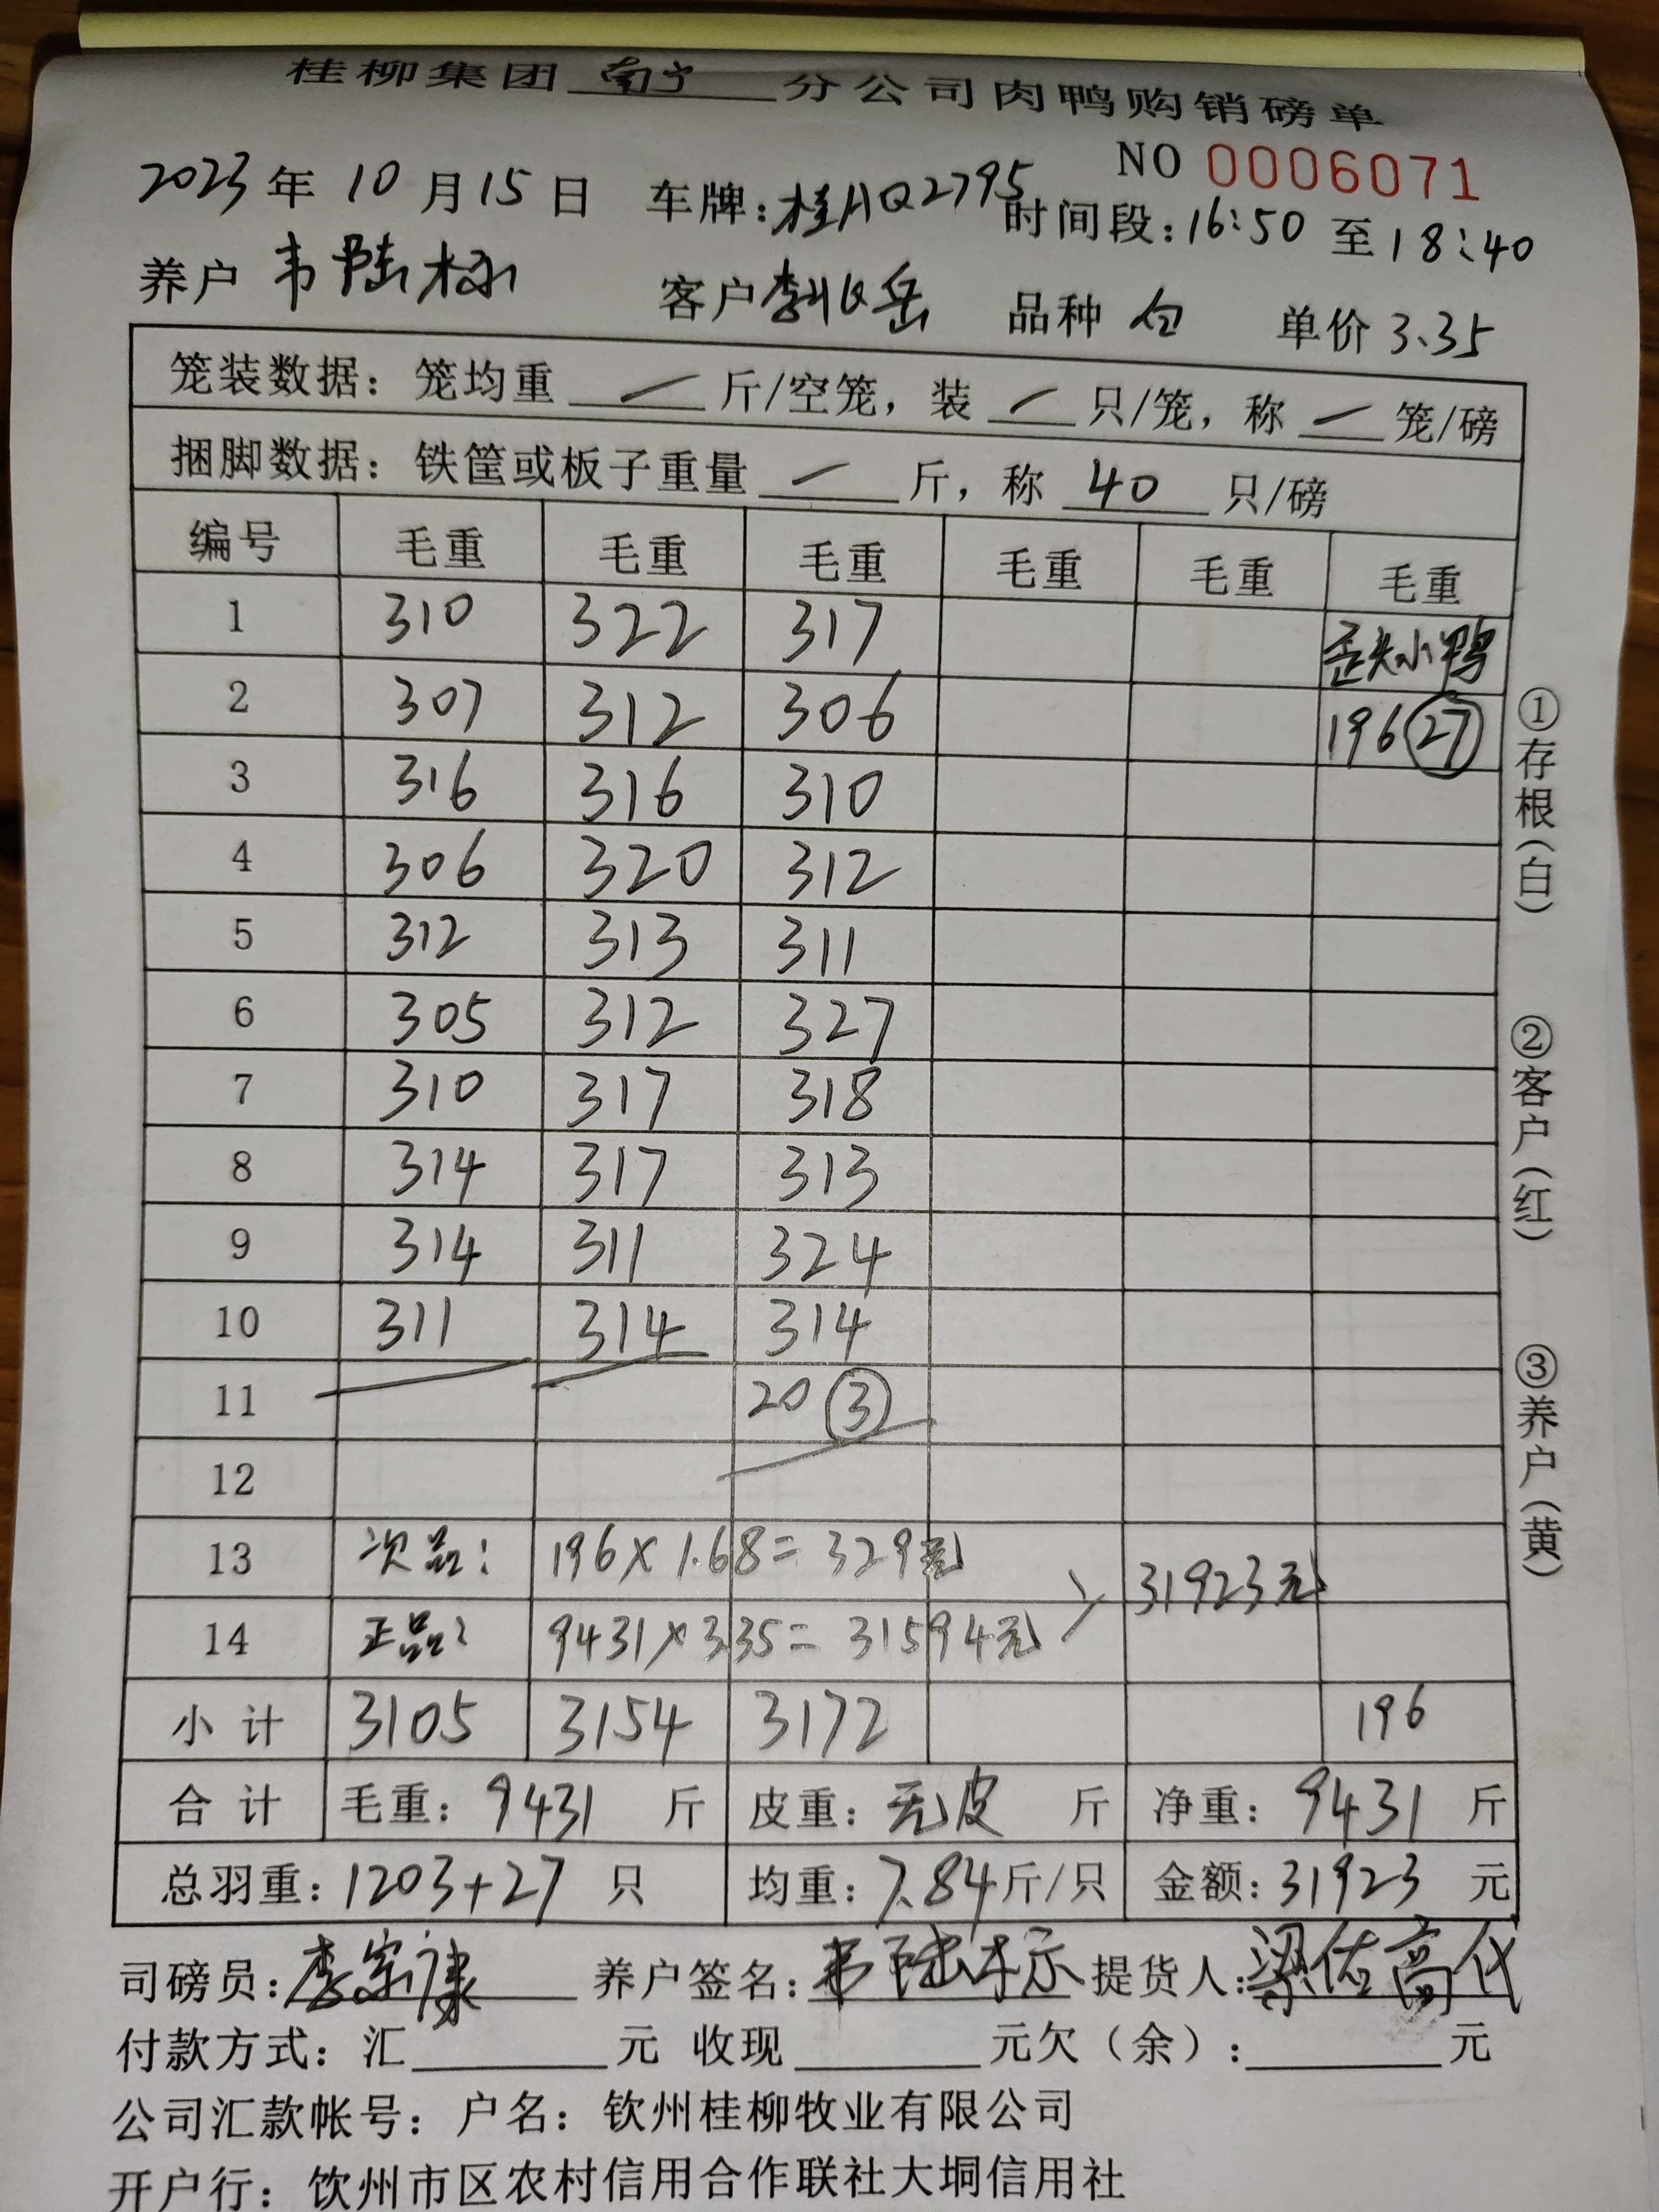 桂柳集团 南宁 分公司肉鸭购销磅单
NO 0006071
2023 年 10 月 15 日 车牌:桂AQ2795 时间段:16:50 至 18:40
养户 韦陆标 客户 李 岳 品种 白 单价 3.35
笼装数据:笼均重 — 斤/空笼,装 — 只/笼,称 — 笼/磅
捆脚数据:铁筐或板子重量 — 斤,称 40 只/磅
编号 毛重 毛重 毛重 毛重 毛重 毛重
1 310 322 317 歪头小鸭
2 307 312 306 196 27
3 316 316 310
4 306 320 312
5 312 313 311
6 305 312 327
7 310 317 318
8 314 317 313
9 314 311 324
10 311 314 314
11 20 3
12
13 次品: 196×1.68=329元 31923元
14 正品: 9431×3.35=31594元
小计 3105 3154 3172 196
合计 毛重:9431 斤 皮重:无皮 斤 净重:9431 斤
总羽重:1203+27 只 均重:7.84斤/只 金额:31923 元
司磅员:李宗康 养户签名:韦陆标 提货人:梁佐高代
付款方式:汇 元 收现 元欠(余): 元
公司汇款帐号:户名:钦州桂柳牧业有限公司
开户行:饮州市区农村信用合作联社大垌信用社
①存根(白)
②客户(红)
③养户(黄)